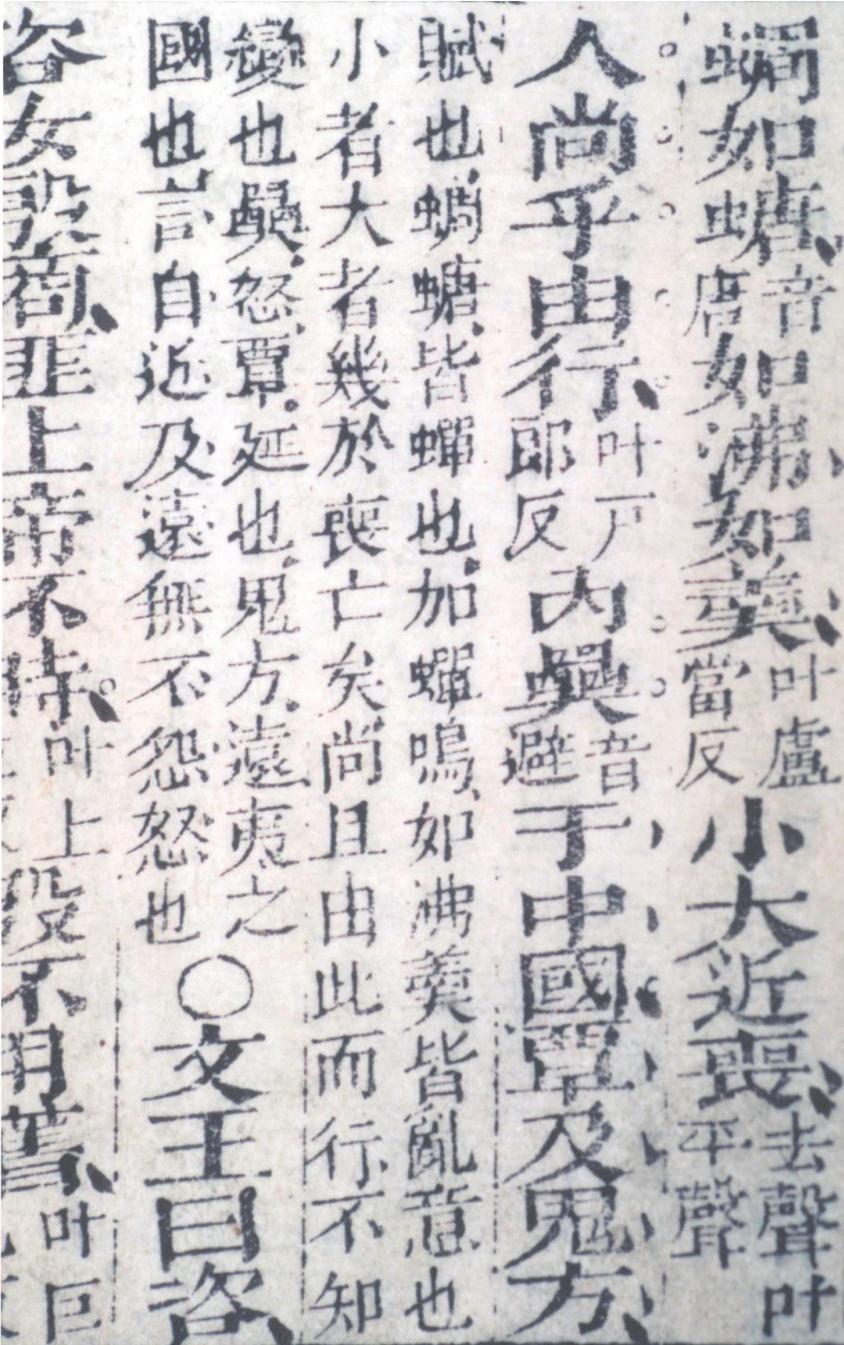 蜩如螗音唐如沸如羹叶盧當反小大近喪去聲叶平聲
人尚乎由行叶戶郎反內奰音避于中國覃及鬼方
賦也蜩螗皆蟬也加蟬鳴如沸羹皆亂意也
小者大者幾於喪亡矣尚且由此而行不知
變也奰怒覃延也鬼方遠夷之
國也言自近及遠無不怨怒也
○文王曰咨
咨女殷商匪上帝不時叶上殷不用舊叶巨